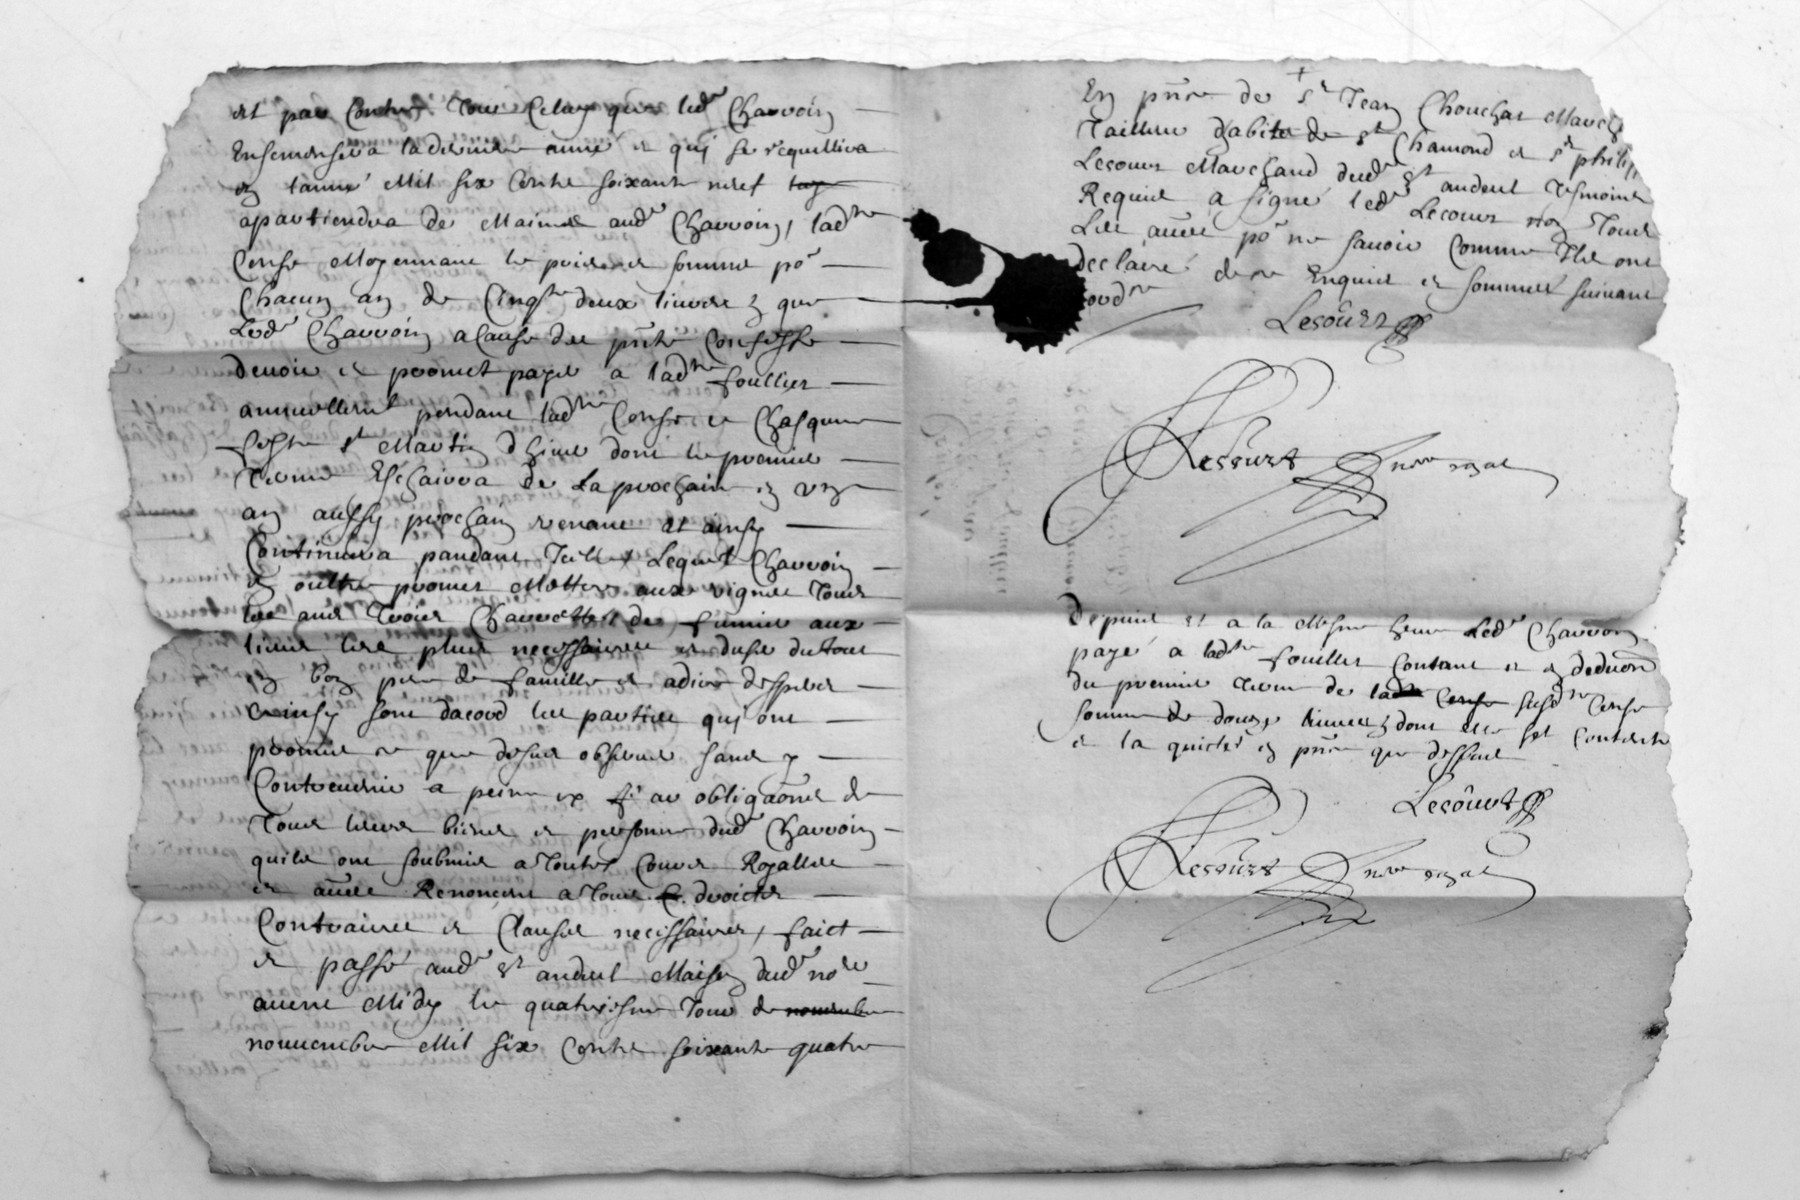 et par contre tout celuy que led.r Chavvoin
Ensemensera la derniere année et quj se requillira
en lannée Mil six Cents soixante neuf
apartiendra de Maimes aud.r Chavvoin, lad.tte
Cense Moyennant le prix et somme po.r
Chacun an de Cinq.te deux livres que
Led.r Chavvoin a cause des pnte confesse
devoir et promet payer a lad.tte foullier
annuellemt pendant lad.tte Cense et Chasque
feste st Martin dhiver dont le premier
Terme Eschairra de La prochaine en vng
an aussy prochain venant et ainsy
Continuera pandant Lequel Chavvoin
en oultre promet Metter aux vignes Tous
les ans Trois Charrettes de fumier aux
lieux les plus necessaires et dusér du tout
en bon pere de famille et
Et ainsy sont dacord les parties quj ont
promis ce que desus observer sans y
Contrevenir a peine &c par obligaons de
Tous leurs biens et personne dud.r Chavvoin
quils ont soubmis a toutes Cours Royalles
et aues Renonçent a tous droicts
Contraires et Clauses necessaires, faict
et passé aud.r st andeol Maison dud.r no.re
avent Midy le quatriesme Jour de novembre
novembre Mil six Cents soixante quatre
En pnce de sr Jean Chouchat March
Tailleur dabits de st Chamond et sr philip
Lecourt Marchand dud.r st andeol Tesmoins
Requis a signé led.r Lecourt non Tous
Les aues po.r ne savoir Comme Ils ont
declairé de ce Enquis et sommés suivant
lord.ce
Lecourt
Lecourt no.re royal
Depuis et a la Mesme heure Led.r Chavvoin
payé a lad.tte fouillet Contant et en deduon
du premier Terme de lad.te Cense susd.tte Cense
somme de douze livres dont elle set contente
et la quicté en pnce que dessus
Lecourt
Lecourt no.re royal